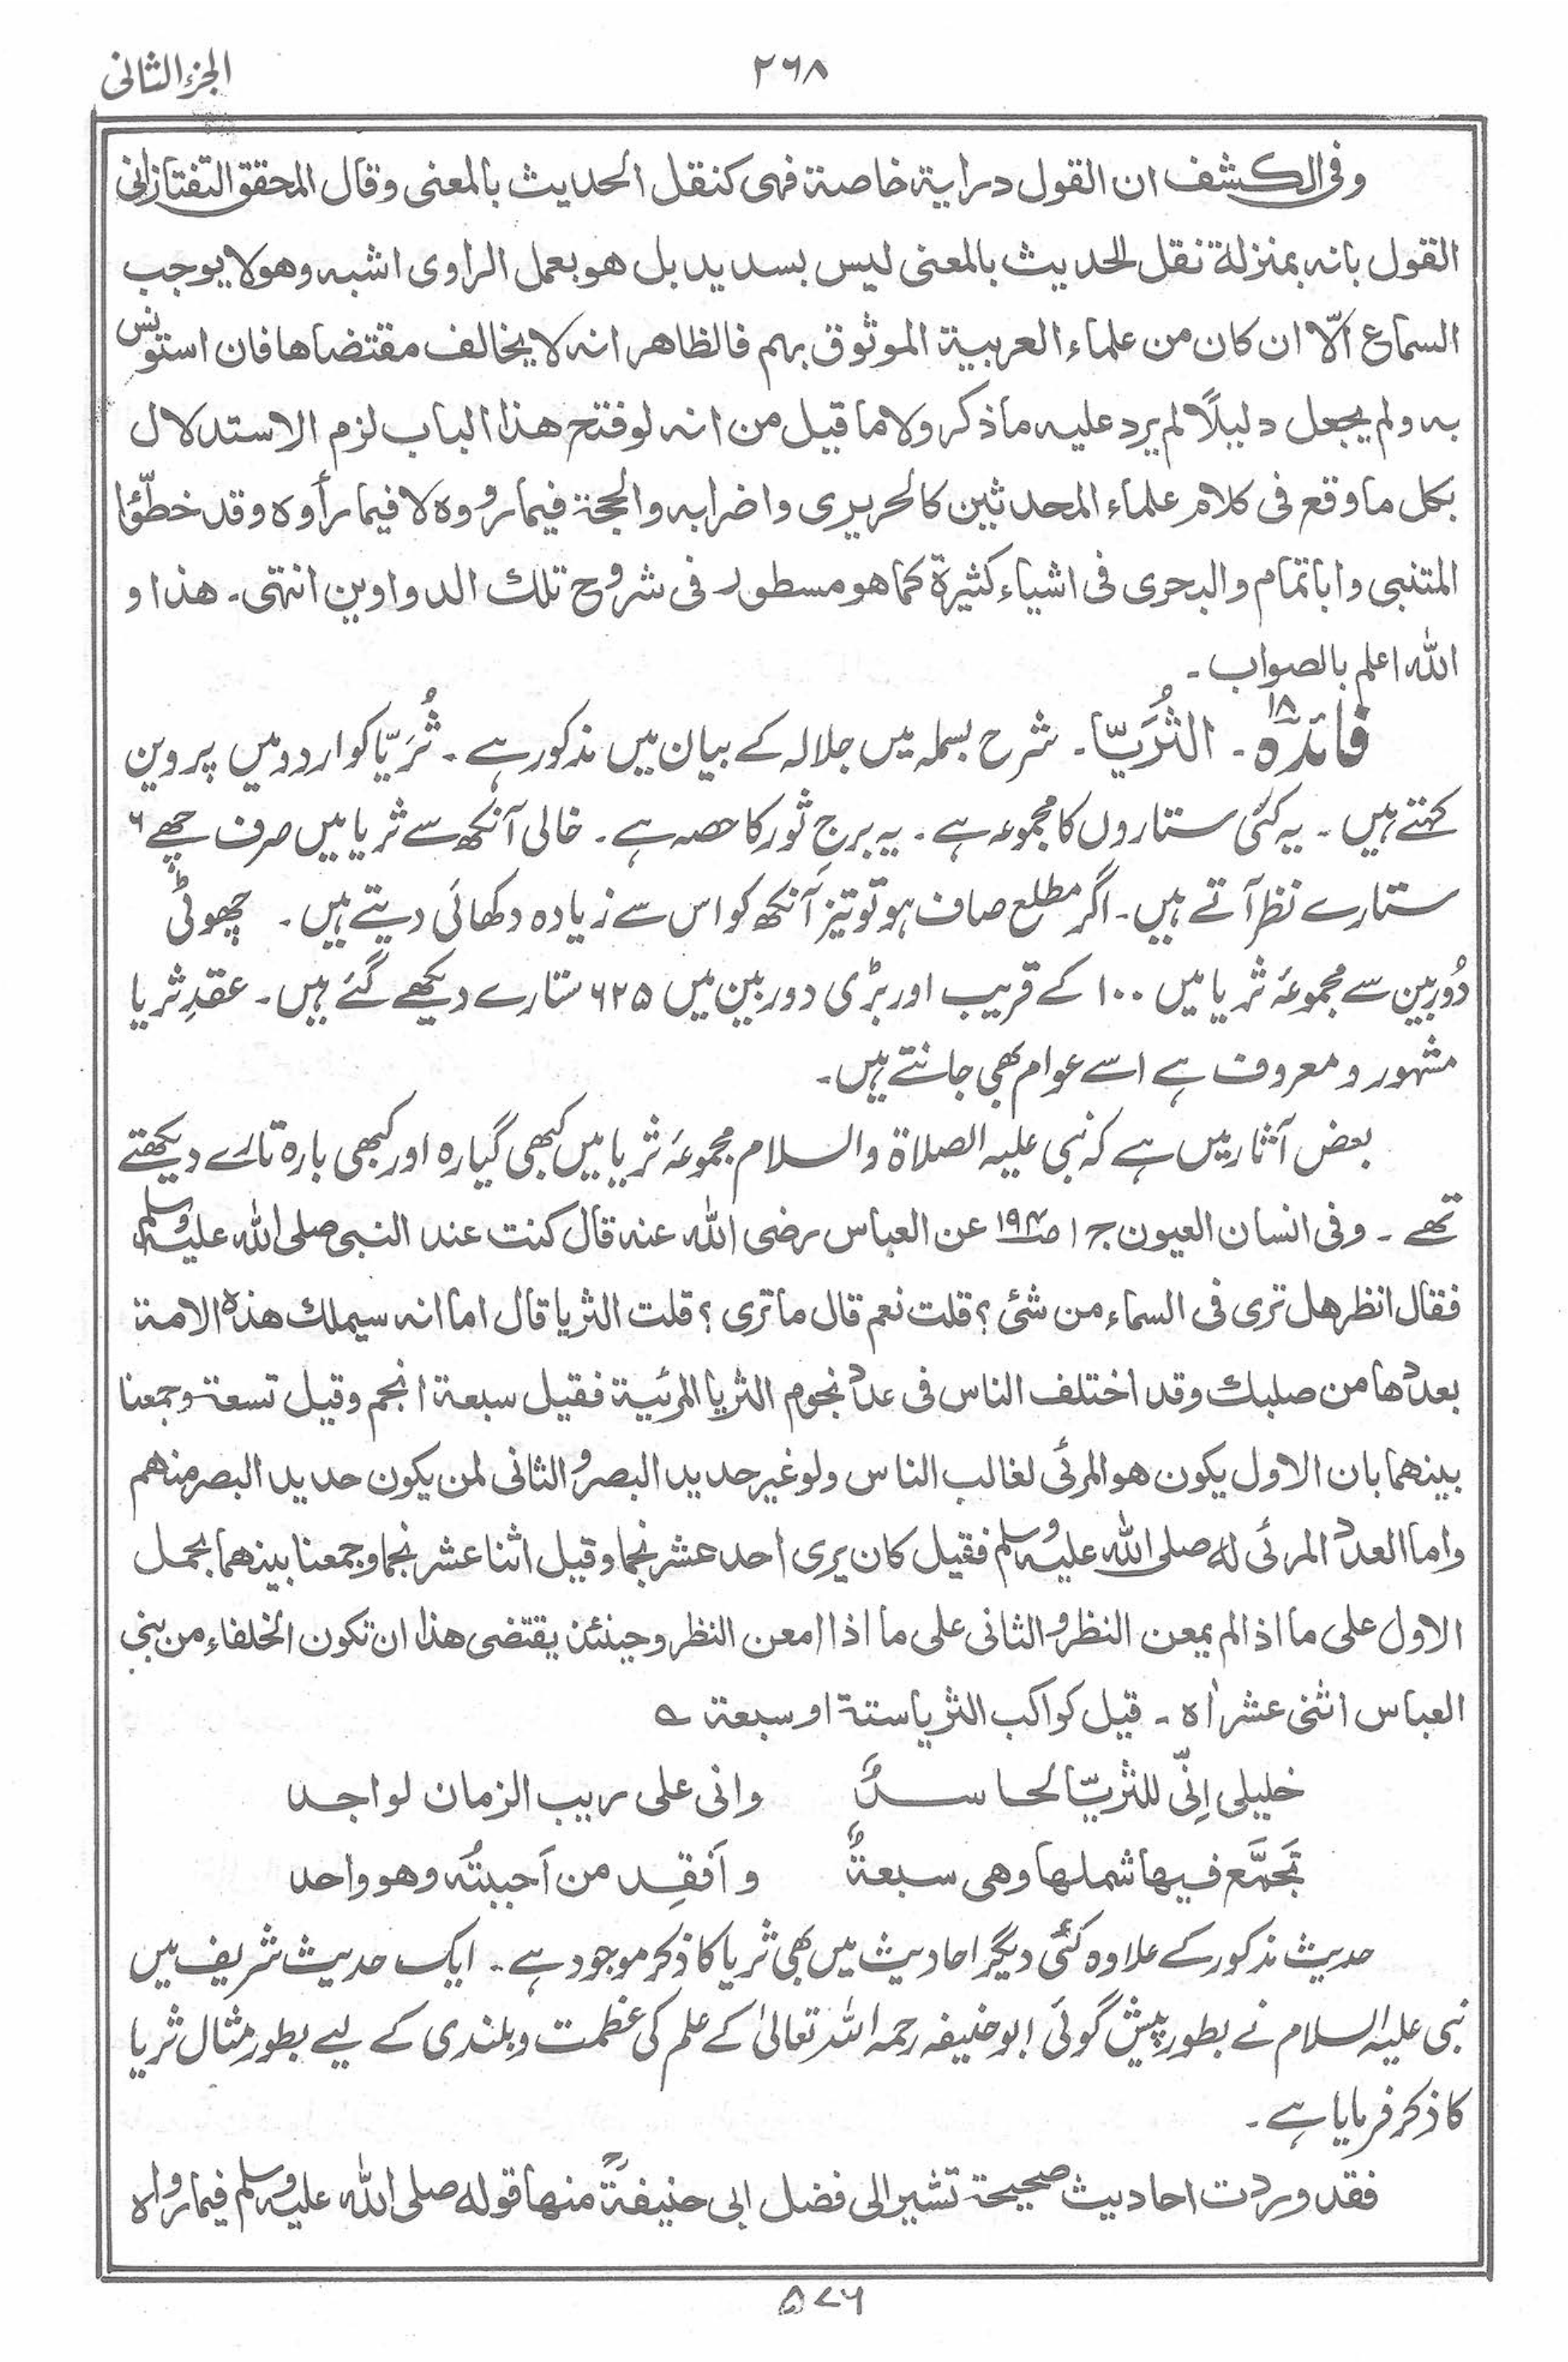 الجزء الثانی
۲۶۸
وفی الکشف ان القول درایة خاصة فهی کنقل الحدیث بالمعنی وقال المحقق التفتازانی
القول بانه بمنزلة نقل الحدیث بالمعنی لیس بسدید بل هو بعمل الراوی اشبه وهو لا یوجب
السماع الّا ان کان من علماء العربیة الموثوق بهم فالظاهر انه لا یخالف مقتضاها فان استونس
به ولم یجعل دلیلًا لم یرد علیه ما ذکر ولا ما قیل من انه لو فتح هذا الباب لزم الاستدلال
بکل ما وقع فی کلام علماء المحدثین کالحریری واضرابه والحجة فیما رووه لا فیما رأوه وقد خطّئوا
المتنبی وابا تمام والبحری فی اشیاء کثیرة کما هو مسطور فی شروح تلك الدواوین انتهی۔ هذا و
الله اعلم بالصواب۔
فائدہ ۱۸ ۔ الثُّرَیّا۔ شرح بسملہ میں جلالہ کے بیان میں مذکور ہے۔ ثُرَیّا کو اردو میں پروین
کہتے ہیں ۔ یہ کئی ستاروں کا مجموعہ ہے ۔ یہ برجِ ثور کا حصہ ہے ۔ خالی آنکھ سے ثریا میں صرف چھے ۶
ستارے نظر آتے ہیں۔ اگر مطلع صاف ہو تو تیز آنکھ کو اس سے زیادہ دکھائی دیتے ہیں ۔ چھوٹی
دُوربین سے مجموعۂ ثریا میں ۱۰۰ کے قریب اور بڑی دوربین میں ۶۲۵ ستارے دیکھے گئے ہیں۔ عقدِ ثریا
مشہور و معروف ہے اسے عوام بھی جانتے ہیں۔
بعض آثار میں ہے کہ نبی علیہ الصلاۃ والسلام مجموعۂ ثریا میں کبھی گیارہ اور کبھی بارہ تارے دیکھتے
تھے ۔ وفی انسان العیون ج ۱ ص۱۹۴ عن العباس رضی الله عنه قال کنت عند النبی صلی الله علیه وسلم
فقال انظر هل تری فی السماء من شئ؟ قلت نعم قال ما تری؟ قلت الثریا قال اما انه سیملك هذه الامة
بعددها من صلبك وقد اختلف الناس فی عدد نجوم الثریا المرئیة فقیل سبعة انجم وقیل تسعة وجمعنا
بینهما بان الاول یکون هو المرئی لغالب الناس ولو غیر حدید البصر والثانی لمن یکون حدید البصر منهم
واما العدد المرئی له صلی الله علیه وسلم فقیل کان یری احد عشر نجما وقیل اثنا عشر نجما وجمعنا بینهما بحمل
الاول علی ما اذا لم یمعن النظر والثانی علی ما اذا امعن النظر وحینئذ یقتضی هذا ان تکون الخلفاء من بنی
العباس اثنی عشر اه ۔ قیل کواکب الثریا ستة او سبعة ؎
خلیلی اِنّی للثریّا لحاسدٌ وانی علی ریب الزمان لواجد
تَجَمَّع فیها شملها وهی سبعةٌ و اَفقِد من اَحببتُه وهو واحد
حدیث مذکور کے علاوہ کئی دیگر احادیث میں بھی ثریا کا ذکر موجود ہے۔ ایک حدیث شریف میں
نبی علیہ السلام نے بطور پیش گوئی ابو حنیفہ رحمہ اللہ تعالیٰ کے علم کی عظمت و بلندی کے لیے بطور مثال ثریا
کا ذکر فرمایا ہے۔
فقد وردت احادیث صحیحة تشیر الی فضل ابی حنیفة منها قوله صلی الله علیه وسلم فیما رواه
۵۷۶